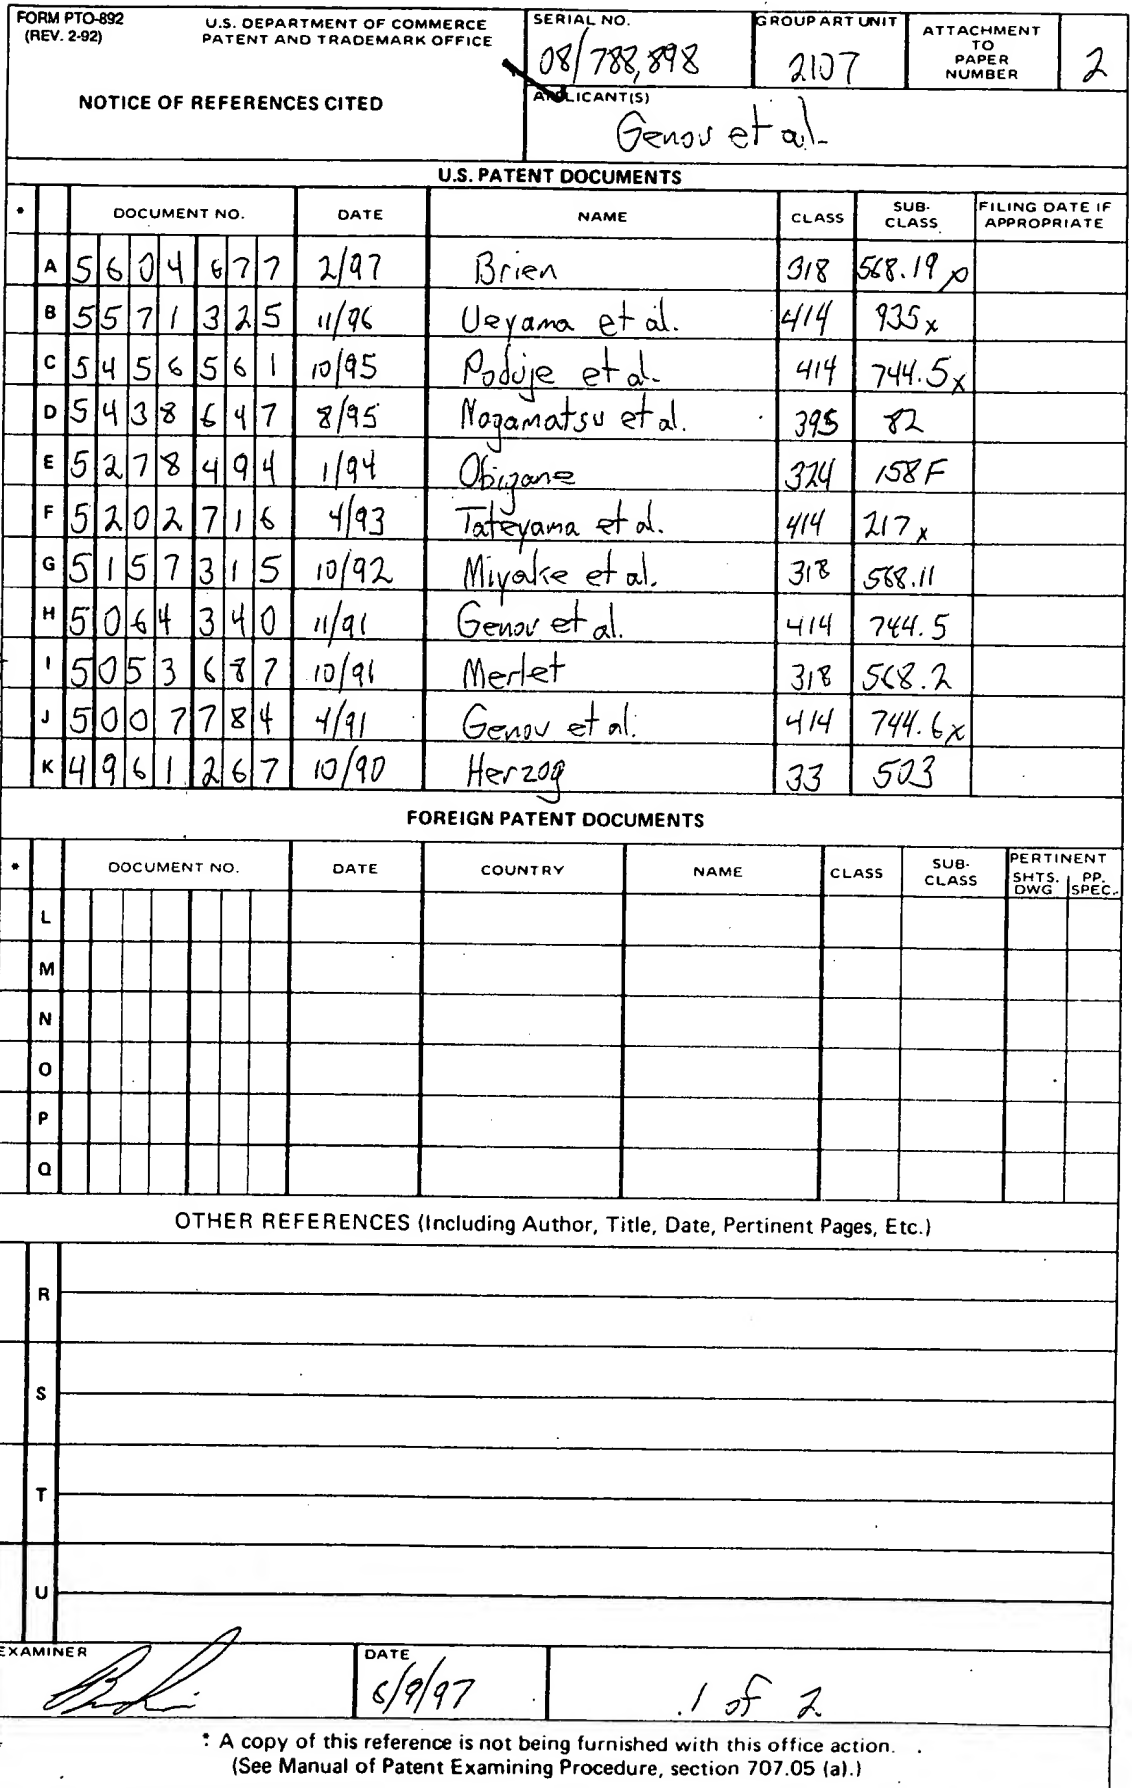 FORM PTO-892 U.S. DEPARTMENT OF COMMERCE
(REV. 2-92) PATENT AND TRADEMARK OFFICE
NOTICE OF REFERENCES CITED
SERIAL NO.
08/788,898
GROUP ART UNIT
2107
ATTACHMENT
TO
PAPER
NUMBER
2
APPLICANT(S)
Genov et al.
U.S. PATENT DOCUMENTS
* DOCUMENT NO. DATE NAME CLASS SUB-CLASS FILING DATE IF APPROPRIATE
A 5604677 2/97 Brien 318 568.19 x
B 5571325 11/96 Ueyama et al. 414 935 x
C 5456561 10/95 Poduje et al. 414 744.5 x
D 5438647 8/95 Nagamatsu et al. 395 82
E 5278494 1/94 Obigane 324 158 F
F 5202716 4/93 Tateyama et al. 414 217 x
G 5157315 10/92 Miyake et al. 318 568.11
H 5064340 11/91 Genov et al. 414 744.5
I 5053687 10/91 Merlet 318 568.2
J 5007784 4/91 Genov et al. 414 744.6 x
K 4961267 10/90 Herzog 33 503
FOREIGN PATENT DOCUMENTS
* DOCUMENT NO. DATE COUNTRY NAME CLASS SUB-CLASS PERTINENT SHTS. DWG PP. SPEC.
L
M
N
O
P
Q
OTHER REFERENCES (Including Author, Title, Date, Pertinent Pages, Etc.)
R
S
T
U
EXAMINER DATE
/9/97 1 of 2
* A copy of this reference is not being furnished with this office action.
(See Manual of Patent Examining Procedure, section 707.05 (a).)